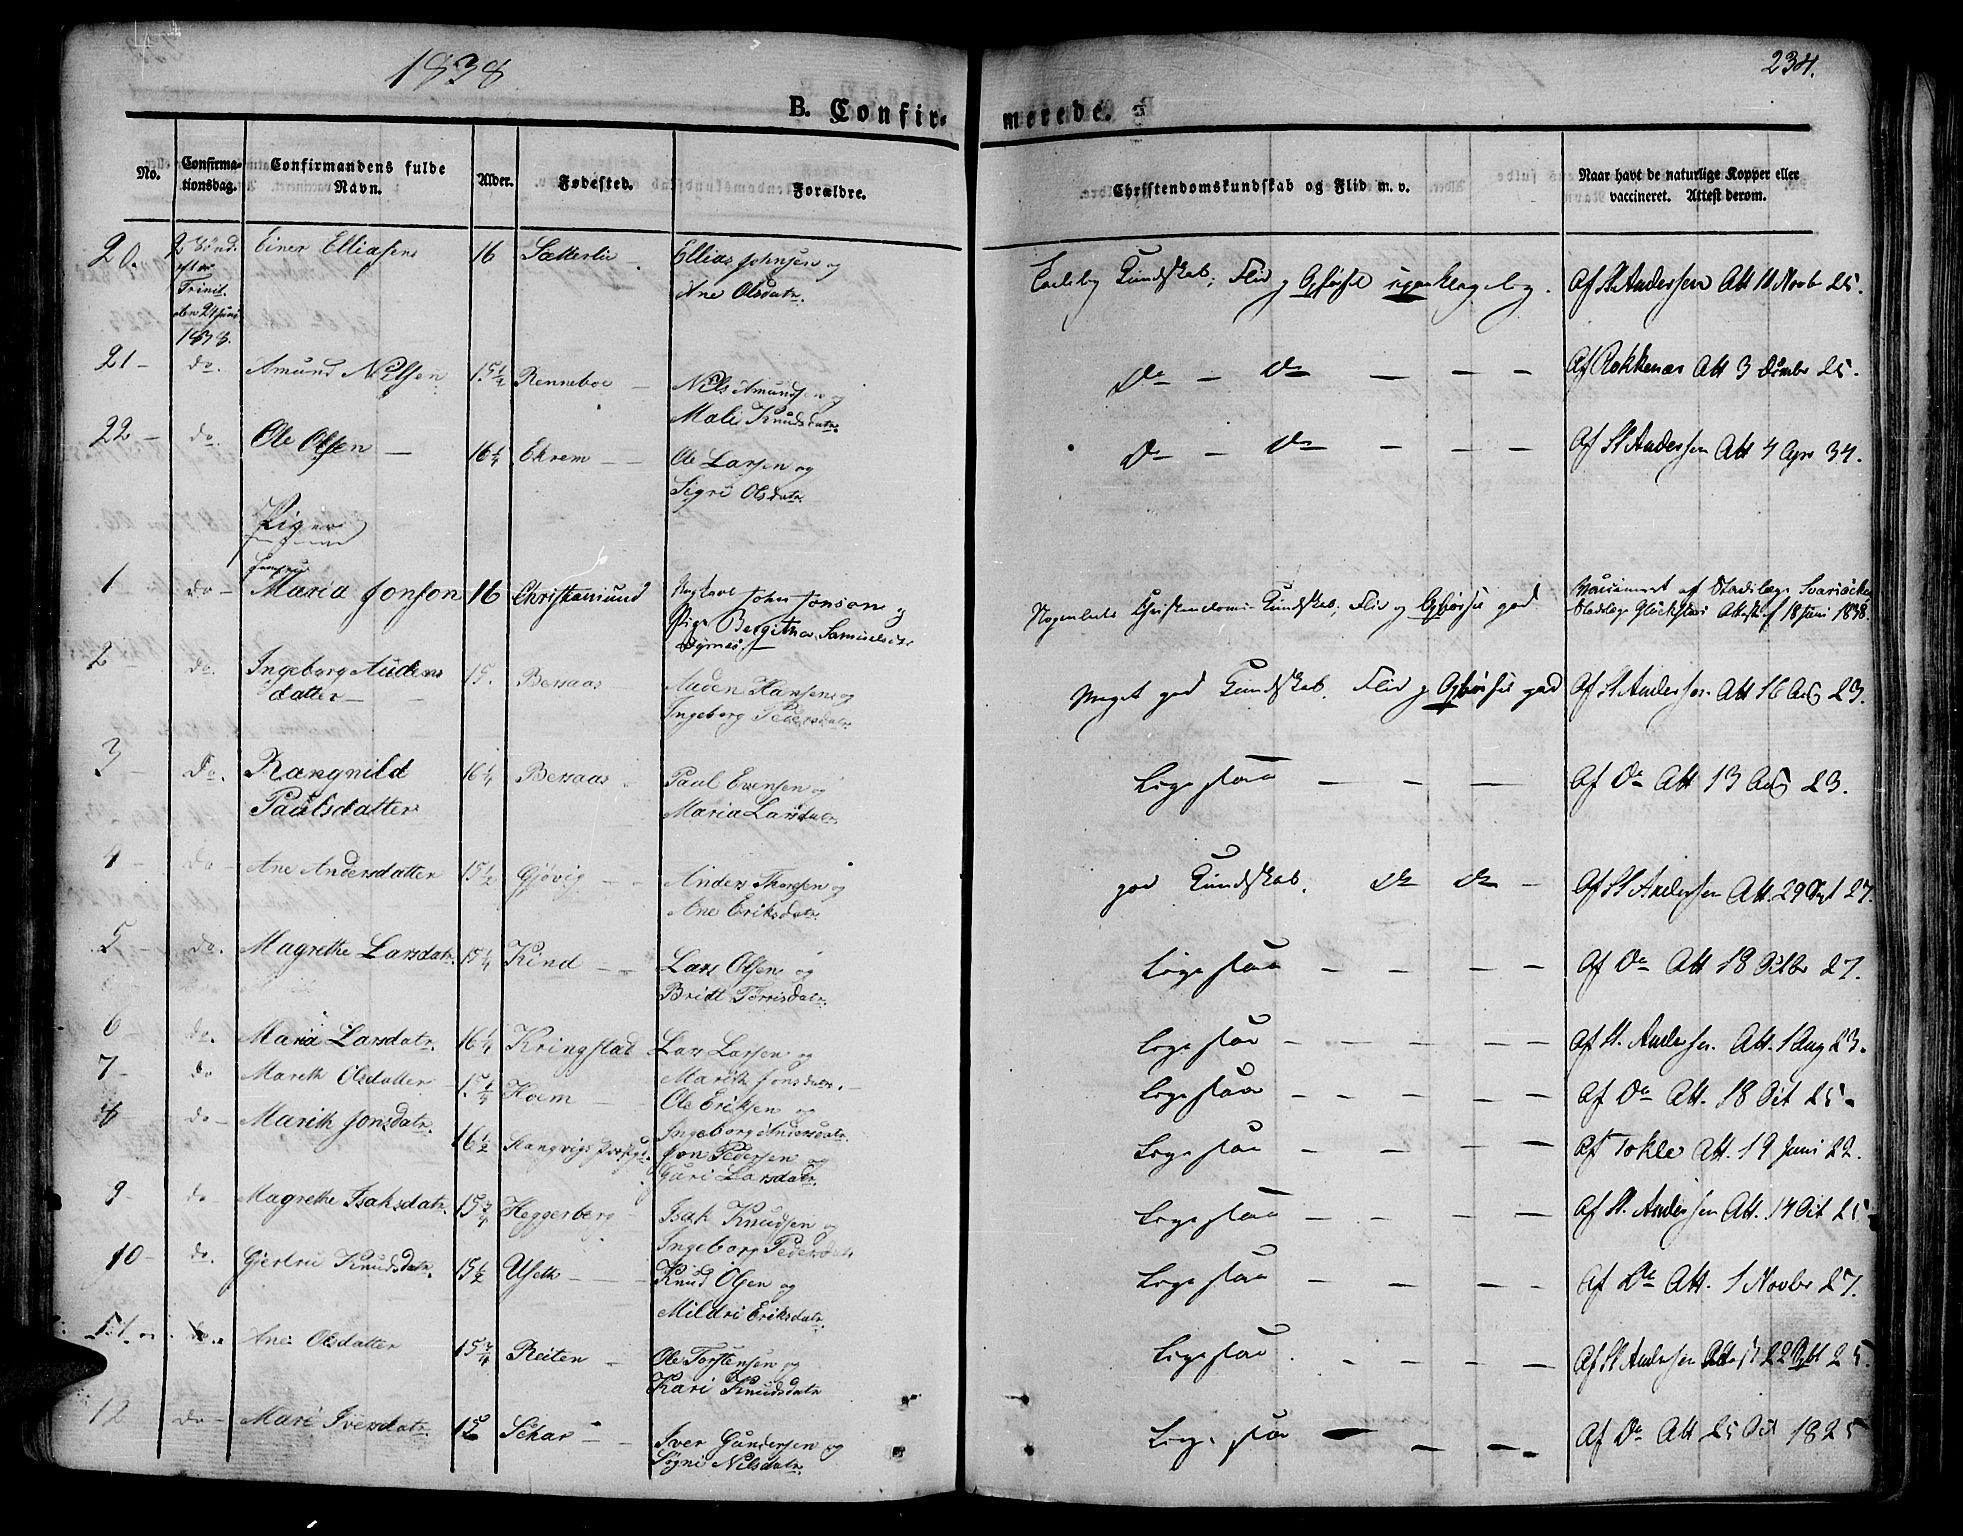 1838
234.
B. Confirmerede.
No. Confirmationsdag. Confirmandens fulde Navn. Alder. Fødested. Forældre. Christendomskundskab og Flid m. v. Naar havt de naturlige Kopper eller vaccineret. Attest derom.
20. 2 Sønd. Einer Elliasen 16 Sætterlie Ellias Johnsen og
efter Ane Olsdatr.
Trinit. Kundskab, Flid og Opførsel Af St. Andersen Att 11 Novbr 25.
den 24 Juni
1838.
21 - do. Amund Nilsen 15½ Renneboe - Nils Amundsen og Do - Do - - - Af Rokkenes Att 3 25.
Mali Knudsdatr.
22 - do. Ole Olsen - 16¼ Ekrem - - Ole Larsen og Do - Do - - - Af St Andersen Att 4 Apr 34.
Sigri Olsdatr.
Piger
1 do - Maria Jonson 16 Christiansund John Jonson og Christendoms Kundskab, Flid og Opførsel god Vaccineret af
Pige Bergitha Samuelsdtr Attest af 18 Juni 1838.
2 - do. Ingeborg Audens 15. Bersaas Auden Hansen og Meget god Kundskab. Flid og Opførsel god Af St Andersen Att 16 Aug 23.
datter - Ingeborg Pedersdatr.
3 - Do. Rangnild 16¼ Bersaas Paul Evensen og Ligesaa - - - Af Do Att 13 Aug 23.
Paulsdatter Maria Larsdatr
4 - do - Ane Andersdatter 15½ Gjøvig - - Anders Thorsen og god Kundskab. Do Do - Af St Andersen Att. 29 Spt 27.
Ane Eriksdatr.
5 - do. Magrethe Larsdatr. 15¼ Kind - - Lars Olsen og Ligesaa - - - - Af Do Att 18 Octbr 27.
Bridt Torrisdatr.
6 - do. Maria Larsdatr. 16¼ Kringstad Lars Larsen og Ligesaa - - - - Af St. Andersen. Att. 1 Aug 23.
Marith Jonsdatr. -
7 - do Mareth Olsdatter 15¼ Hoem - - Ole Eriksen og Ligesaa - - - - - Af Do Att. 18 Oct 25.
Ingeborg Andersdatr.
8 do - Marith Jonsdatr. 16½ Jon Pedersen og Ligesaa - - - - Af Tokle Att. 19 Juni 22.
Guri Larsdatr.
9 - do Magrethe Isaksdatr. 15¾ Heggerberg - Isak Knudsen og Ligesaa - - - - Af St. Andersen Att. 14 Oct 25
Ingeborg Pedersdatr
10 - do. Gjertru Knudsdatr. 15½ Useth - - Knud Olsen og Ligesaa - - - - Af Do Att. 1 Novbr 27.
Mildri Eriksdatr.
do. Ane Olsdatter 15¾ Reiten - Ole Torstensen og Ligesaa - - - - Af St Andersen 22 25.
Kari Knudsdatr
12 do - Mari Iversdatr. 15 Schar - - Iver Gundersen og Ligesaa - - - - Af Do Att 25 Oct 1825
Sogni Nilsdatr.